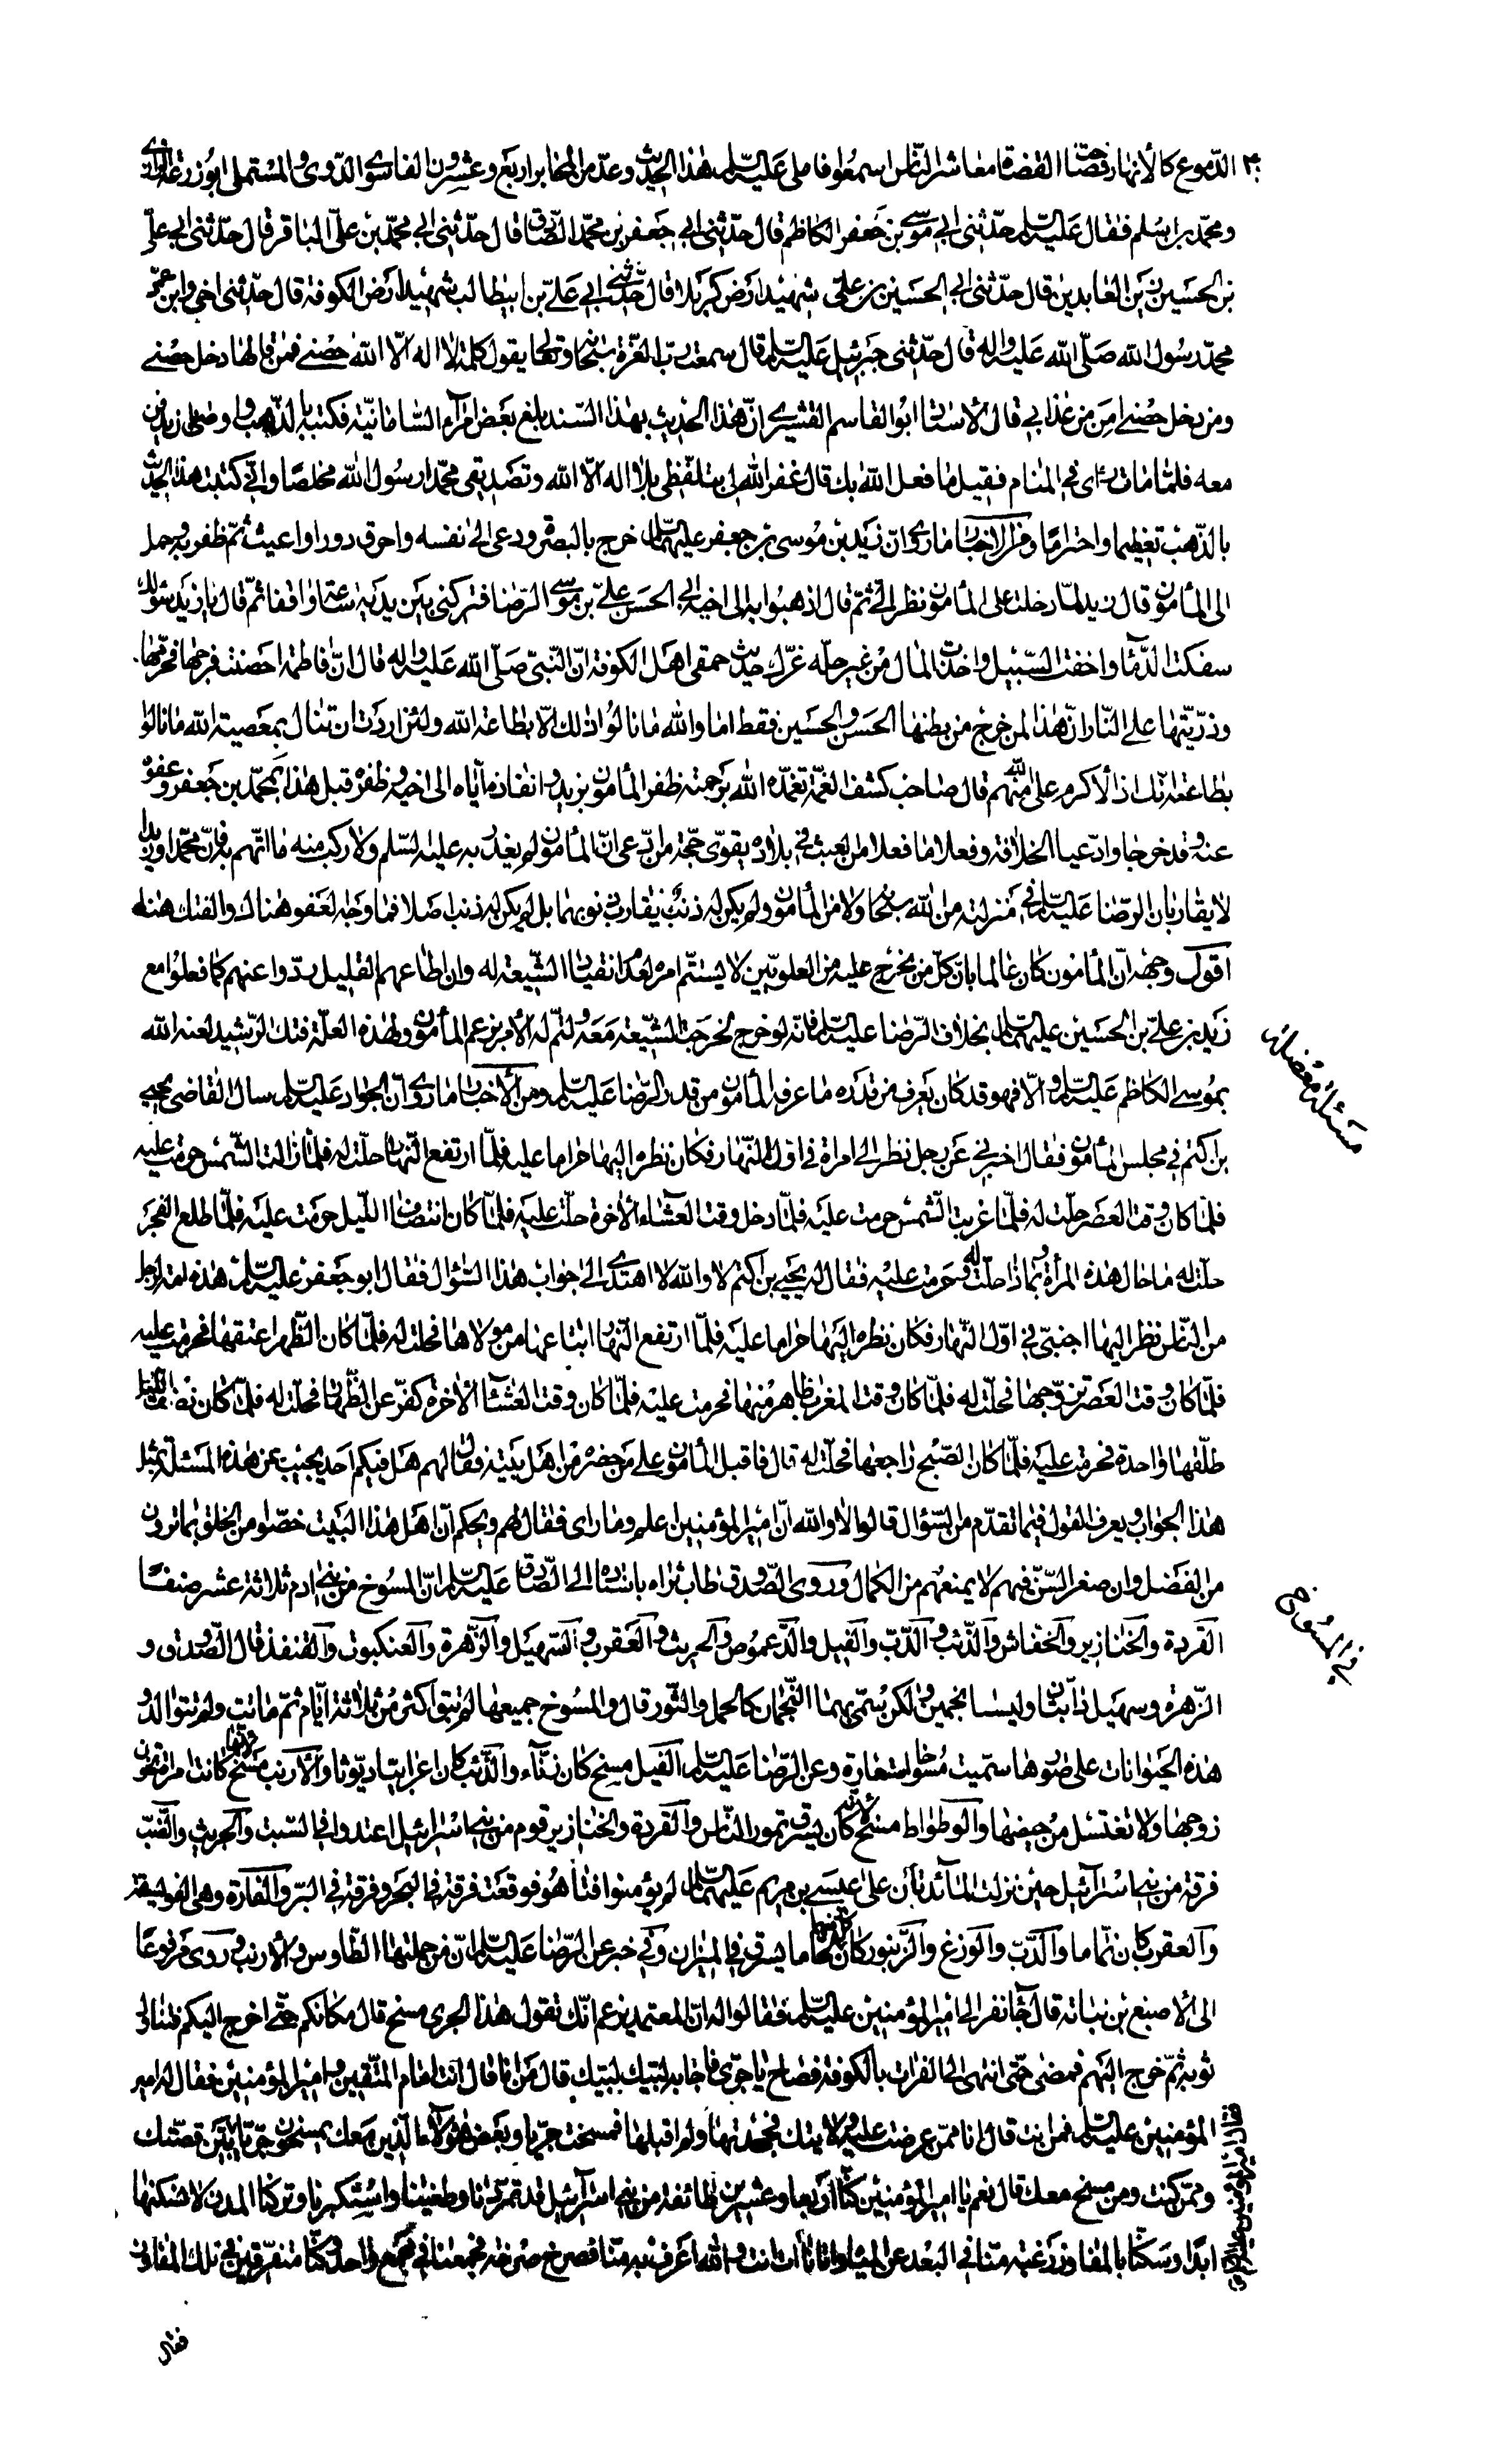 الدّموع كالأنهار فصاحت القضاة معاشر النّاس اسمعوا فاملى عليه السّلم هذا الحديث وعدّ من المحابر اربع وعشرون الفا سوى الدّوى والمستملى ابو زرعة الرازى
ومحمّد بن اسلم فقال عليه السّلم حدّثنى ابى موسى بن جعفر الكاظم قال حدّثنى ابى جعفر بن محمّد الصّادق قال حدّثنى ابى محمّد بن علىّ الباقر قال حدّثنى ابى علىّ
بن الحسين زين العابدين قال حدّثنى ابى الحسين بن علىّ شهيد ارض كربلا قال حدّثنى ابى علىّ بن ابيطالب شهيد ارض الكوفة قال حدّثنى اخى وابن عمّى
محمّد رسول الله صلّى الله عليه واله قال حدّثنى جبرئيل عليه السّلم قال سمعت ربّ العزّة سبحانه وتعالى يقول كلمة لا اله الّا الله حصنى فمن قالها دخل حصنى
ومن دخل حصنى امن من عذابى قال الأستاد ابو القاسم القشيرى انّ هذا الحديث بهذا السّند بلغ بعض امرآء السّامانيّة فكتبه بالذّهب واوصى ان يدفن
معه فلمّا مات رأى فى المنام فقيل ما فعل الله بك قال غفر الله لى بتلفّظى بلا اله الّا الله وتصديقى محمّدا رسول الله مخلصا وانّى كتبت هذا الحديث
بالذّهب تعظيما واحتراما ومن الاخبار ما روى ان زيد بن موسى بن جعفر عليهما السّلم خرج بالبصرة ودعى الى نفسه واحرق دورا واعيث ثمّ ظفر به وحمل
الى المأمون قال زيد لمّا دخلت على المأمون نظر الىّ ثمّ قال اذهبوا به الى اخيه ابى الحسن علىّ بن موسى الرّضا فتركنى بين يديه ساعة واقفا ثمّ قال يا زيد سوأة لك
سفكت الدّماء واخفت السّبيل واخذت المال من غير حلّه غرّك حديث حمقى اهل الكوفة انّ النّبىّ صلّى الله عليه واله قال انّ فاطمة احصنت فرجها فحرّمها
وذرّيّتها على النّار انّ هذا لمن خرج من بطنها الحسن والحسين فقط اما والله ما نالوا ذلك الّا بطاعة الله ولئن اردت ان تنال بمعصية الله ما نالوا
بطاعته انّك اذا لأكرم على الله منهم قال صاحب كشف الغمّة تغمّده الله برحمته ظفر المأمون بزيد وانفاذه ايّاه الى اخيه وظفره قبل هذا بمحمّد بن جعفر وعفوه
عنه وقد خرجا وادّعيا الخلافة وفعلا ما فعلا من العبث فى بلاده يقوّى حجّة من ادّعى انّ المأمون لم يغدر به عليه السّلم ولا ركب منه ما اتّهم به فانّ محمّدا وزيدا
لا يقاربان الرّضا عليه السّلم فى منزلته من الله سبحانه ولا من المأمون ولم يكن له ذنب يقارب ذنوبهما بل لم يكن له ذنب اصلا فما وجه العفو هناك والفتك هنا
اقول وجهه انّ المأمون كان عالما بانّ كلّ من يخرج عليه من العلويّين لا يستتمّ امره لعدم انقياد الشّيعة له وان اطاعهم القليل ردّوا عنهم كما فعلوا مع
زيد بن علىّ بن الحسين عليهما السّلم بخلاف الرّضا عليه السّلم فانّه لو خرج لخرجت الشّيعة معه ولتمّ له الأمر بزعم المأمون ولهذه العلّة فتك الرّشيد لعنه الله
بموسى الكاظم عليه السّلم والّا فهو قد كان يعرف من قدره ما عرفه المأمون من قدر الرّضا عليه السّلم ومن الأخبار ما روى انّ الجواد عليه السّلم سال القاضى يحيى
بن اكثم فى مجلس المأمون فقال اخبرنى عن رجل نظر الى امراة فى اوّل النّهار فكان نظره اليها حراما عليه فلمّا ارتفع النّهار حلّت له فلمّا زالت الشّمس حرمت عليه
فلمّا كان وقت العصر حلّت له فلمّا غربت الشّمس حرمت عليه فلمّا دخل وقت العشاء الأخرة حلّت عليه فلمّا كان انتصاف اللّيل حرمت عليه فلمّا طلع الفجر
حلّت له ما حال هذه المرأة وبماذا حلّت له وحرمت عليه فقال له يحيى بن اكثم لا والله لا اهتدى الى جواب هذا السّؤال فقال ابو جعفر عليه السّلم هذه امة لرجل
من النّاس نظر اليها اجنبىّ فى اوّل النّهار فكان نظره اليها حراما عليه فلمّا ارتفع النّهار ابتاعها من مولاها فحلّت له فلمّا كان الظّهر اعتقها فحرمت عليه
فلمّا كان وقت العصر تزوّجها فحلّت له فلمّا كان وقت المغرب ظاهر منها فحرمت عليه فلمّا كان وقت العشاء الأخرة كفّر عن الظّهار فحلّت له فلمّا كان نصف اللّيل
طلّقها واحدة فحرمت عليه فلمّا كان الصّبح راجعها فحلّت له قال فاقبل المأمون على من حضره من اهل بيته فقال لهم هل فيكم احد يجيب عن هذه المسئلة بمثل
هذا الجواب ويعرف القول فيما تقدّم من السّؤال قالوا لا والله انّ امير المؤمنين اعلم وما راى فقال لهم ويحكم انّ اهل هذا البيت خصّوا من الخلق بما ترون
من الفضل وان صغر السّن فيهم لا يمنعهم من الكمال وروى الصّدوق طاب ثراه باسناده الى الصّادق عليه السّلم انّ المسوخ من بنى ادم ثلاثة عشر صنفا
القردة والخنازير والخفاش والذّئب والدّب والفيل والدّعموص والجريث والعقرب والسّهيل والزّهرة والعنكبوت والقنفذ قال الصّدوق و
الزّهرة وسهيل دآبّتان وليسا بنجمين ولكن سمّى بهما النّجمان كالحمل والثّور قال والمسوخ جميعها لم تبق اكثر من ثلاثة ايّام ثمّ ماتت ولم تتوالد و
هذه الحيوانات على صورها سمّيت مسوخا استعارة وعن الرّضا عليه السّلم الفيل مسخ كان زنّآء والذّئب كان اعرابيّا ديّوثا والأرنب مسخ لأنّها كانت امراة تخون
زوجها ولا تغتسل من حيضها والوطواط مسخ لأنّه كان يسرق تمور النّاس والقردة والخنازير قوم من بنى اسرائيل اعتدوا فى السّبت والجريث والضّبّ
فرقة من بنى اسرآئيل حين نزلت المائدة على عيسى بن مريم عليهما السّلم لم يؤمنوا فتاهوا فوقعت فرقة فى البحر وفرقة فى البرّ والفارة وهى الفويسقة
والعقرب كان نمّاما والدّبّ والوزغ والزّنبور كان لحّاما يسرق فى الميزان وفى خبر عن الرّضا عليه السّلم انّ من جملتها الطّاوس والأرنب وروى مرفوعا
الى الأصبغ بن نباتة قال جآء نفر الى امير المؤمنين عليه السّلم فقالوا له انّ المعتمد يزعم انّك تقول هذا الجرى مسخ قال مكانكم حتّى اخرج اليكم فتناول
ثوبه ثمّ خرج اليهم فمضى حتّى انتهى الى الفرات بالكوفة فصاح يا جرّى فاجابه لبّيك لبّيك قال من انا قال انت امام المتّقين وامير المؤمنين فقال له امير
المؤمنين عليه السّلم فمن انت قال انا ممّن عرضت عليه ولايتك فجحدتها ولم اقبلها فمسخت جرّيا وبعض هؤلآء الّذين معك يمسخون جرّيّا فبيّن قصّتك
وممّن كنت ومن مسخ معك قال نعم يا امير المؤمنين كنّا اربعا وعشرين طائفة من بنى اسرآئيل قد تمرّدنا وطغينا واستكبرنا وتركنا المدن لا نسكنها
ابدا وسكنّا بالمفاوز رغبة منّا فى البعد عن المياه فاتانا ات انت والله اعرف به منّا فصرخ صرخة فجمعنا فى مجمع واحد وكنّا متفرّقين فى تلك المفاوز
مسئلة معضلة
فى المسوخ
فقال امير المؤمنين عليه السلم
فقال